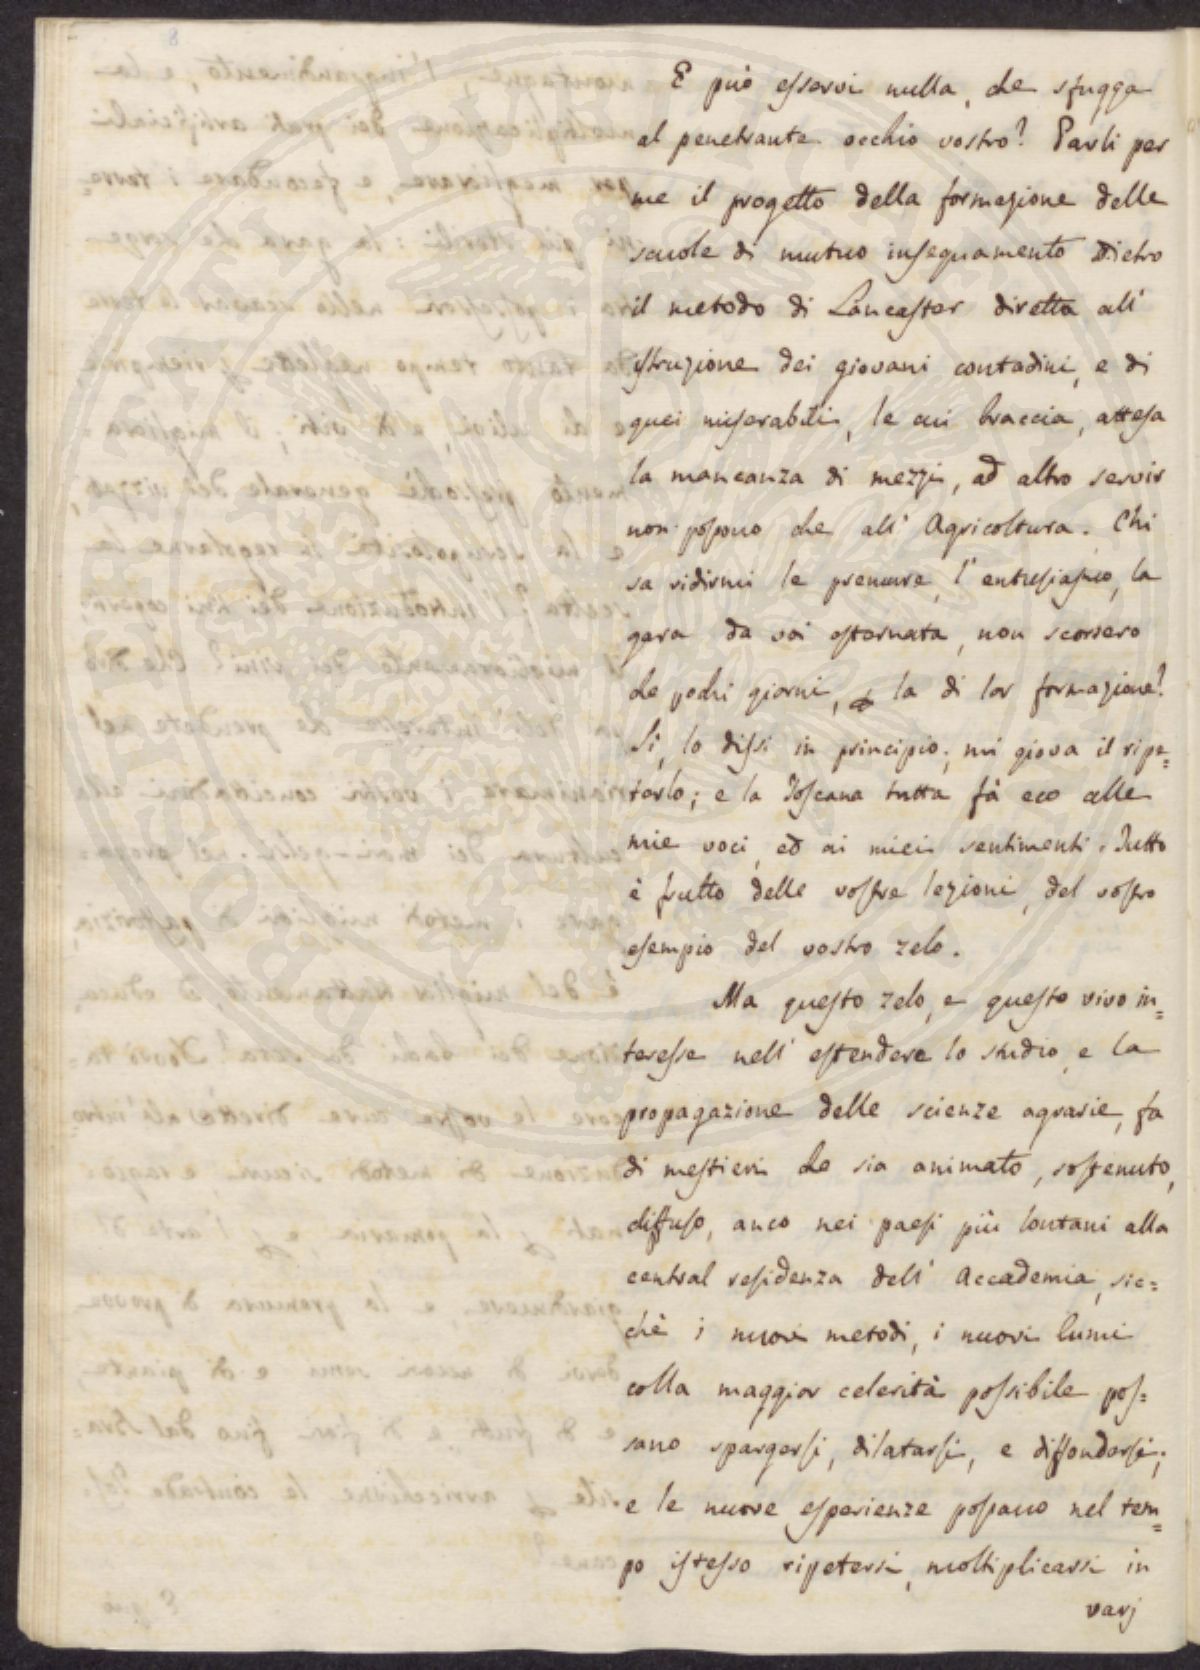 E può esservi nulla, che sfugga
al penetrante occhio vostro? Parli per
me il progetto della formazione delle
scuole di mutuo insegnamento Dietro
il metodo di Lancaster diretta all'
istruzione dei giovani contadini, e di
quei miserabili, le cui braccia, attesa
la mancanza di mezzi, ad altro servir
non possono che all' Agricoltura. Chi
sa ridirmi le premure, l'entusiasmo, la
gara da voi esternata, non scorsero
che pochi giorni, la di lor formazione?
Sì, lo dissi in principio; mi giova il ripe=
terlo; e la Toscana tutta fà eco alle
mie voci, ed ai miei sentimenti. Tutto
è frutto delle vostre lezioni, del vostro
esempio del vostro zelo.
Ma questo zelo, e questo vivo in=
teresse nell' estendere lo studio, e la
propagazione delle scienze agrarie, fa
di mestieri che sia animato, sostenuto,
diffuso, anco nei paesi più lontani alla
central residenza dell' Accademia, sic=
chè i nuovi metodi, i nuovi lumi
colla maggior celerità possibile pos=
sano spargersi, dilatarsi, e diffondersi;
e le nuove esperienze possano nel tem=
po istesso ripetersi, moltiplicarsi in
varj